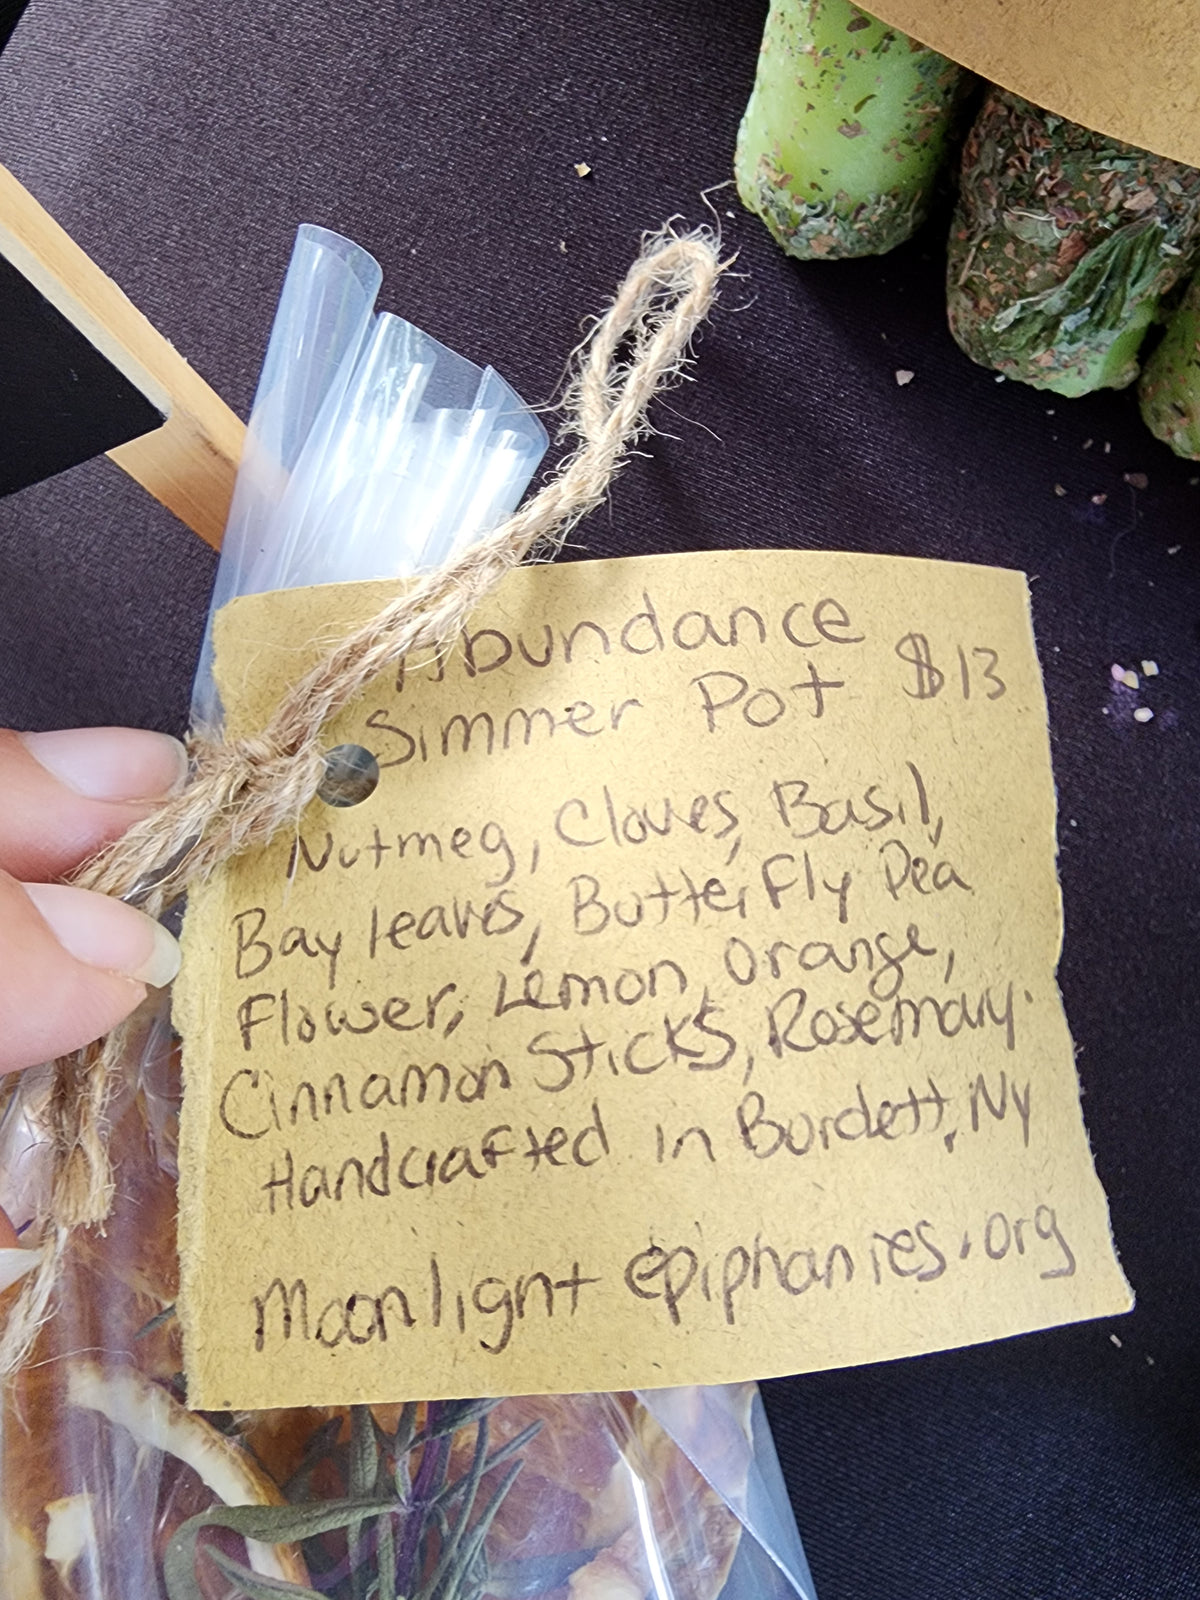 Abundance
Simmer Pot $13
Nutmeg, Cloves, Basil,
Bay leaves, Butterfly Pea
Flower, Lemon, Orange,
Cinnamon Sticks, Rosemary.
Handcrafted in Burdett, Ny
Moonlight epiphanies.org